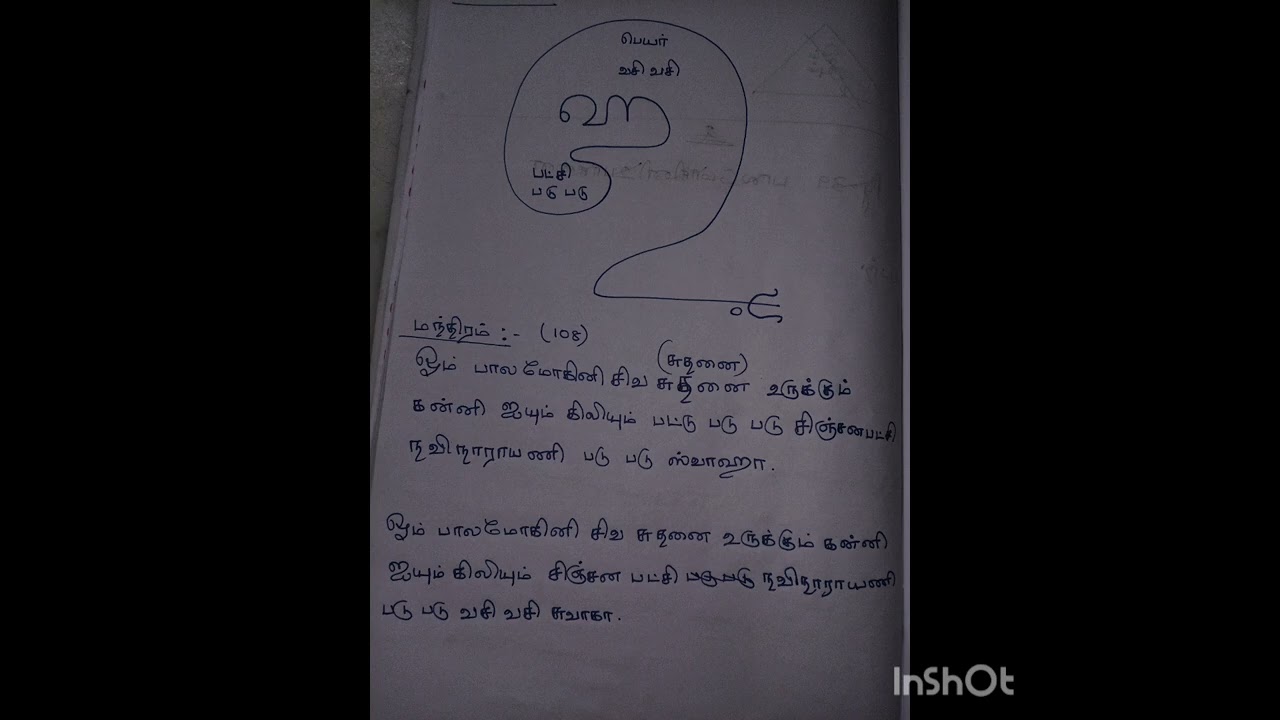 பெயர்
வசி வசி
ஹ
பட்சி
படு படு
மந்திரம் :- (108)
(சுதனை)
ஓம் பாலமோகினி சிவ சுதனை உருக்கும்
கன்னி ஐயும் கிலியும் பட்டு படு படு சிஞ்சனபட்சி
நவிநாராயணி படு படு ஸ்வாஹா.
ஓம் பாலமோகினி சிவ சுதனை உருக்கும் கன்னி
ஐயும் கிலியும் சிஞ்சன பட்சி படு படு நவிநாராயணி
படு படு வசி வசி சுவாகா.
InShOt